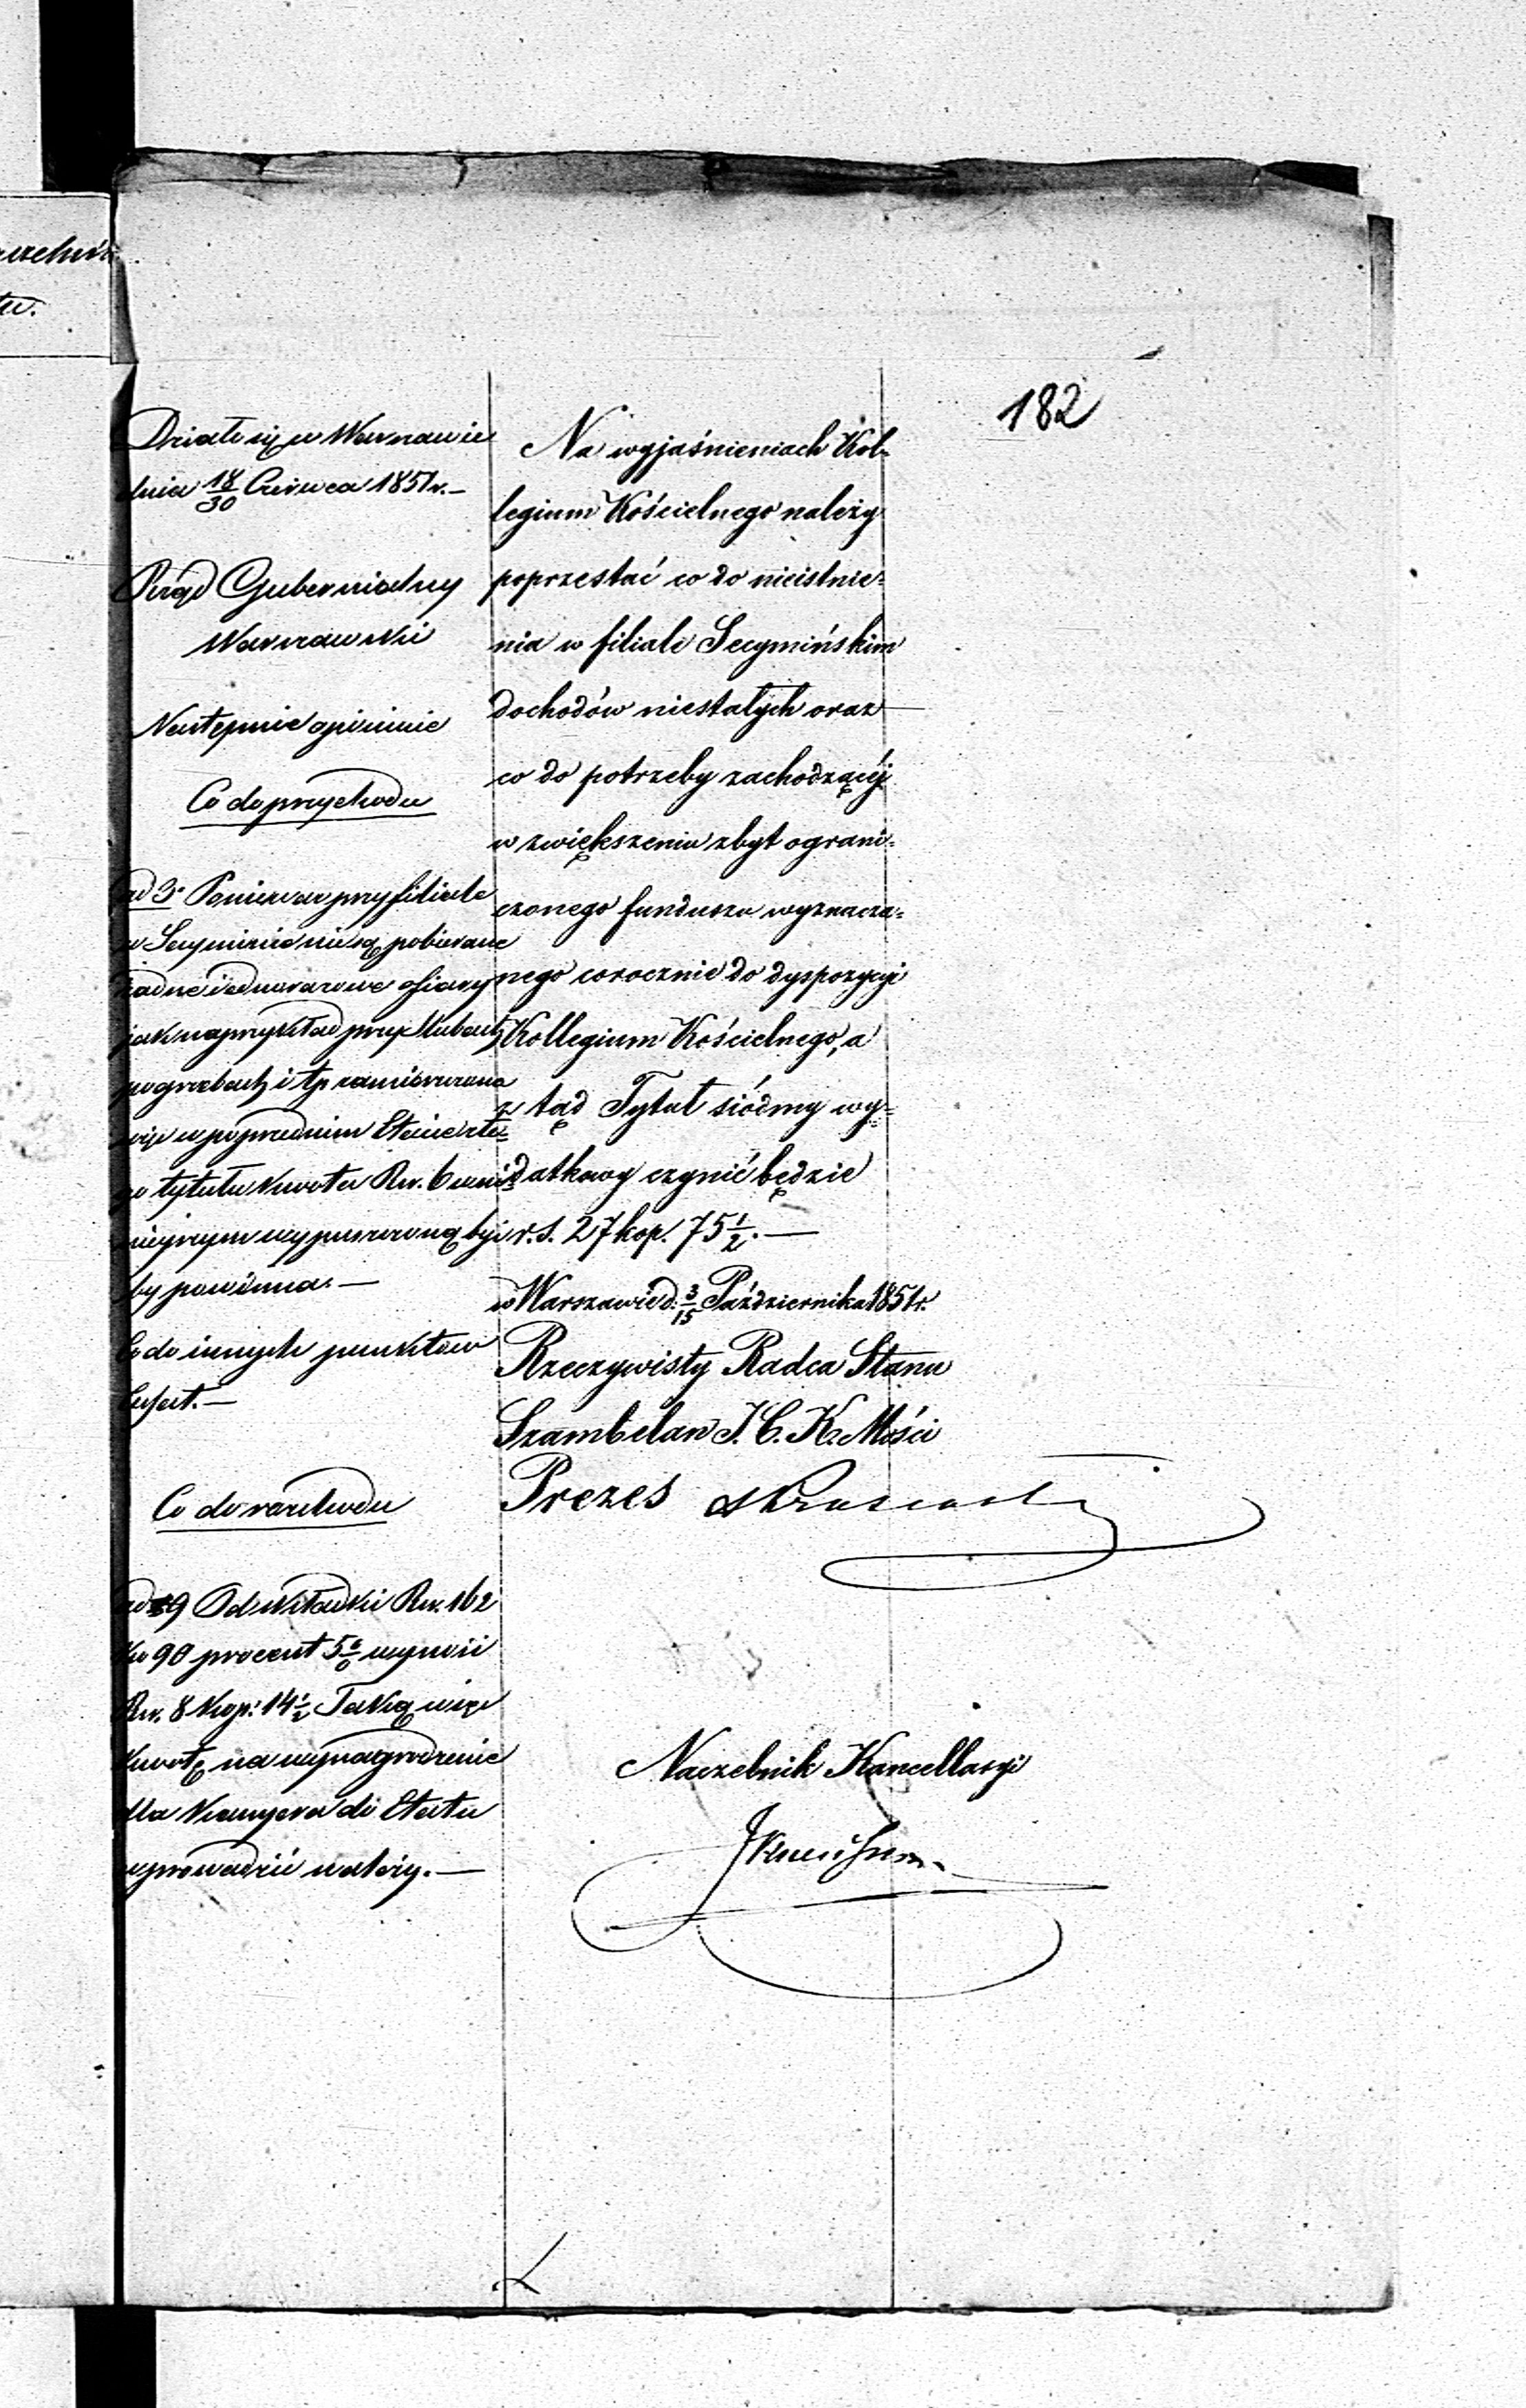 182
Działo się w Warszawie
dnia 18/30 Czerwca 1851 r. —
Rząd Gubernialny
Warszawski
Następnie opiniuie
Co do przychodu
ad 3° Ponieważ przy filiale
w Secyminie nie są pobierane
żadne jednorazowe ofiary
jak naprzykład przy ślubach
pogrzebach i tp zamieszczona
więc w poprzednim Etacie z te=
go tytułu kwota Rsr. 6
wypuszczoną być
by powinna. —
Co do innych punktów
Co do rozchodu
ad 9 Od składki Rsr. 162
ko 90 procent 5 % wynosi
Rsr. 8 kop: 14 1/2 Taką więc
kwotę na wynagrodzenie
dla Kassyera do Etatu
wprowadzić należy. —
Na wyjaśnieniach Kol=
legium Kościelnego należy
poprzestać co do nieistnie=
nia w filiale Secymińskim
dochodów niestałych oraz
co do potrzeby zachodzącej
w zwiększeniu zbyt ograni=
czonego funduszu wyznacza=
nego corocznie do dyspozycyi
Kollegium Kościelnego, a
z tąd Tytuł siódmy wy=
datkowy czynić będzie
r.s. 27 kop. 75 1/2. —
w Warszawie d. 3/15 Października 1851 r.
Rzeczywisty Radca Stanu
Szambelan J. C. K. Mości
Prezes
Naczelnik Kancellaryi